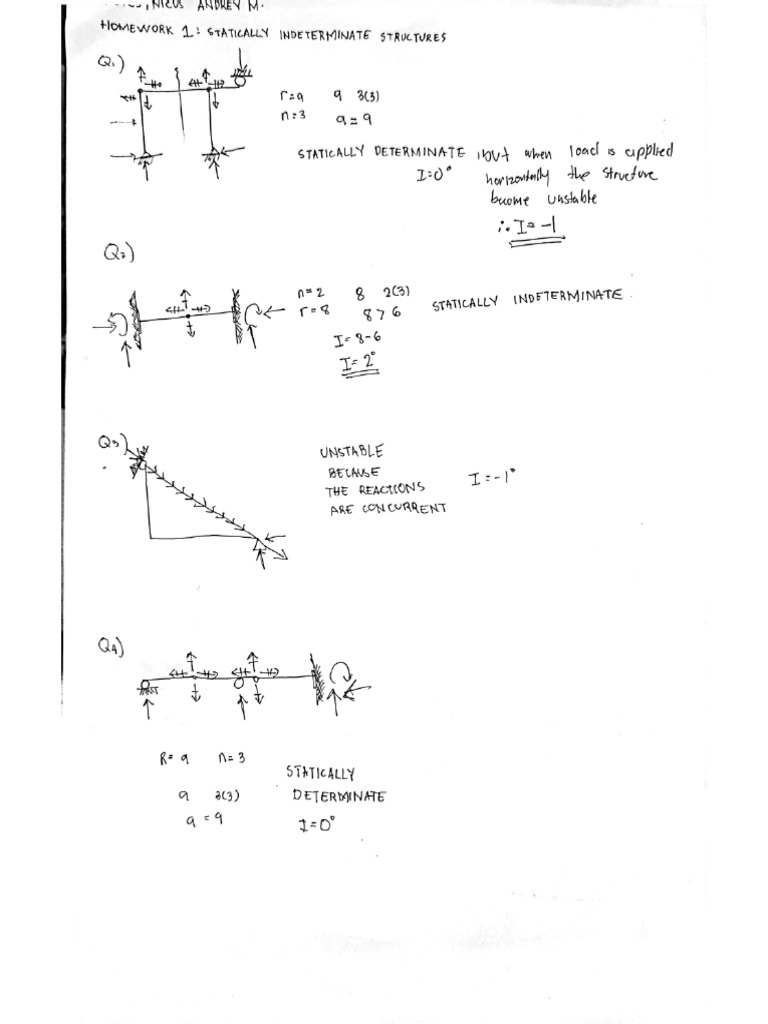 , NIZUS ANDREY M.
HOMEWORK 1: STATICALLY INDETERMINATE STRUCTURES
Q1)
r=9 9 3(3)
n=3 9=9
STATICALLY DETERMINATE but when load is applied
I=0° horizontally the structure
become unstable
∴ I=-1
Q2)
n=2 8 2(3)
r=8 8>6 STATICALLY INDETERMINATE.
I=8-6
I=2°
Q3)
UNSTABLE
BECAUSE
THE REACTIONS I=-1°
ARE CONCURRENT
Q4)
R=9 n=3
STATICALLY
9 3(3) DETERMINATE
9=9 I=0°